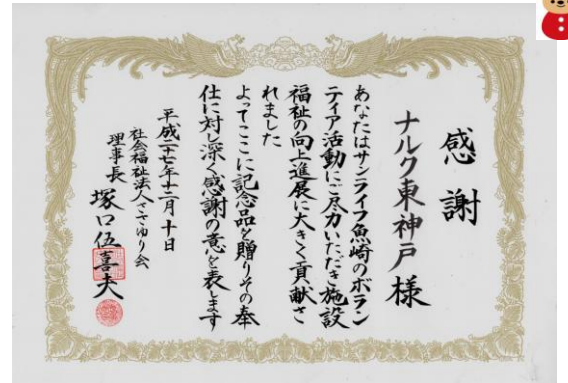 感謝
ナルク東神戸様
あなたはサンライフ魚崎のボラン
ティア活動にご尽力いただき施設
福祉の向上進展に大きく貢献さ
れました
よってここに記念品を贈りその奉
仕に対し深く感謝の意を表します
平成二十七年十二月十日
社会福祉法人ささゆり会
理事長 塚口伍喜夫